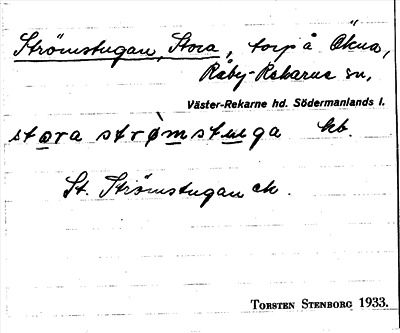 Strömstugan, Stora, torp å Ökna,
Råby-Rekarne sn,
Väster-Rekarne hd. Södermanlands l.
stora strø̀mstuga hb.
St. Strömstugan ek.
TORSTEN STENBORG 1933.